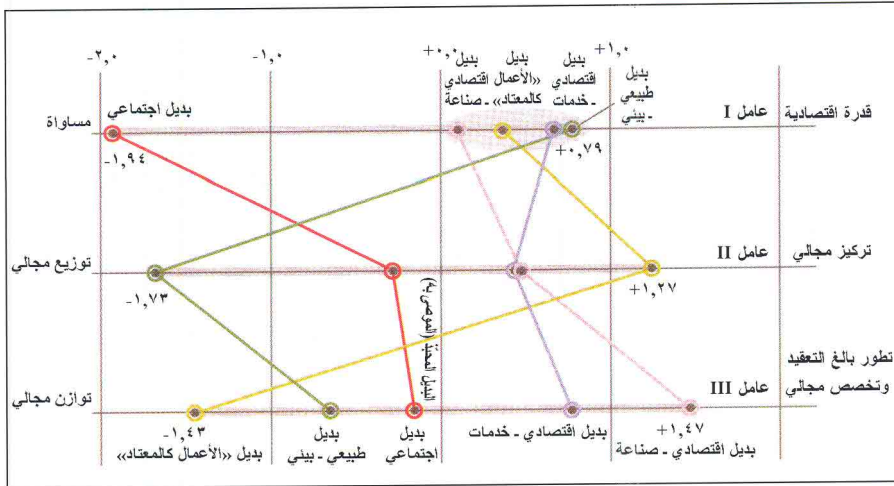 -٢,٠
-١,٠
+٠,٠
+١,٠
بديل اقتصادي - صناعة
بديل «الأعمال كالمعتاد»
بديل اقتصادي - خدمات
بديل طبيعي - بيئي
قدرة اقتصادية
عامل I
بديل اجتماعي
مساواة
-١,٩٤
+٠,٧٩
تركيز مجالي
عامل II
توزيع مجالي
-١,٧٣
+١,٢٧
البديل المحبذ (الموصى به)
تطور بالغ التعقيد
وتخصص مجالي
عامل III
توازن مجالي
-١,٤٣
+١,٤٧
بديل «الأعمال كالمعتاد»
بديل
طبيعي - بيئي
بديل
اجتماعي
بديل اقتصادي - خدمات
بديل اقتصادي - صناعة